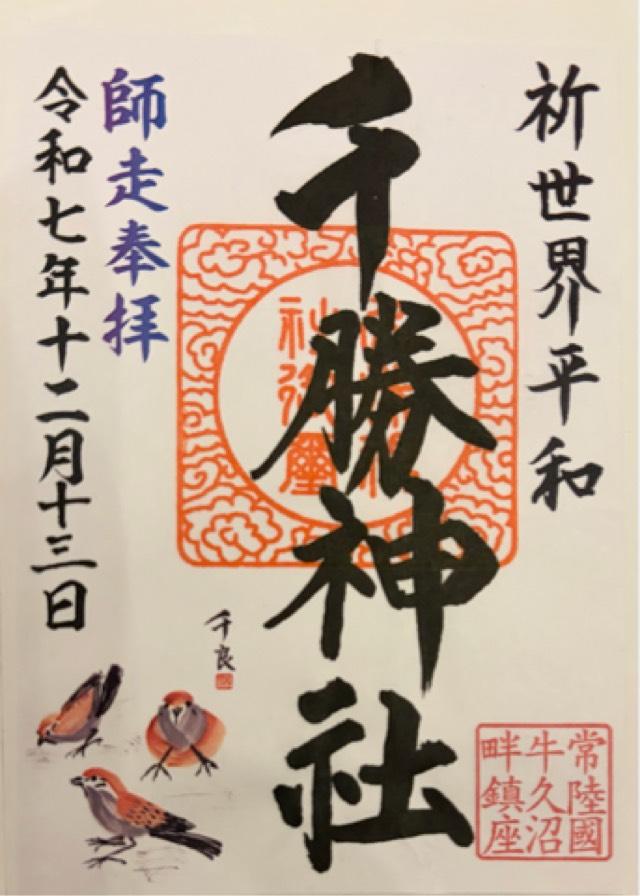 祈世界平和
千勝神社
師走奉拝
令和七年十二月十三日
千良
常陸國
牛久沼
畔鎮座